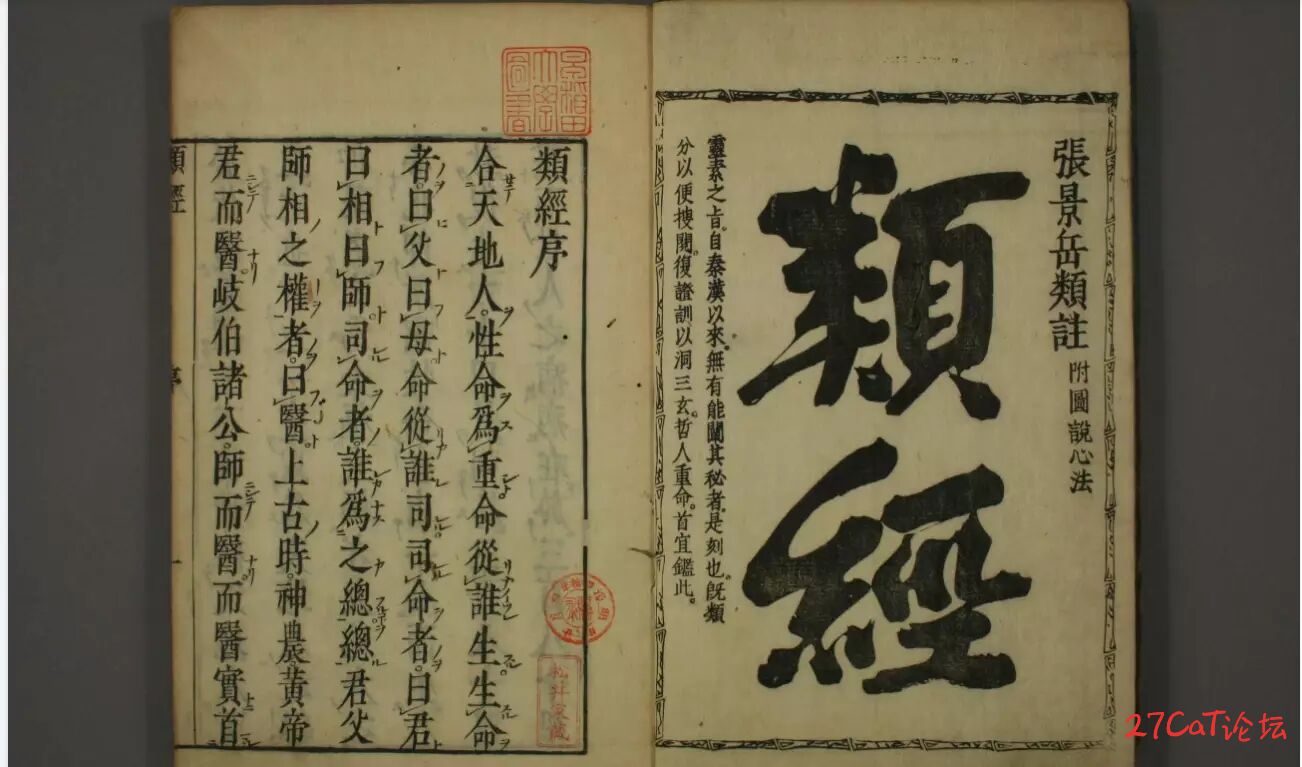 張景岳類註 附圖說心法
類經
靈素之旨。自秦漢以來。無有能闡其秘者。是刻也。旣類
分以便搜閱。復證訓以洞三玄。哲人重命。首宜鑑此。
早稻田大學圖書
類經序
合天地人。性命爲重命從誰生生命
者。曰父曰母命從誰司司命者。曰君
曰相曰師司命者。誰爲之總總君父
師相之權者。曰醫。上古時。神農黃帝
君而醫岐伯諸公。師而醫。而醫實首
類經 序 一
27CaT论坛